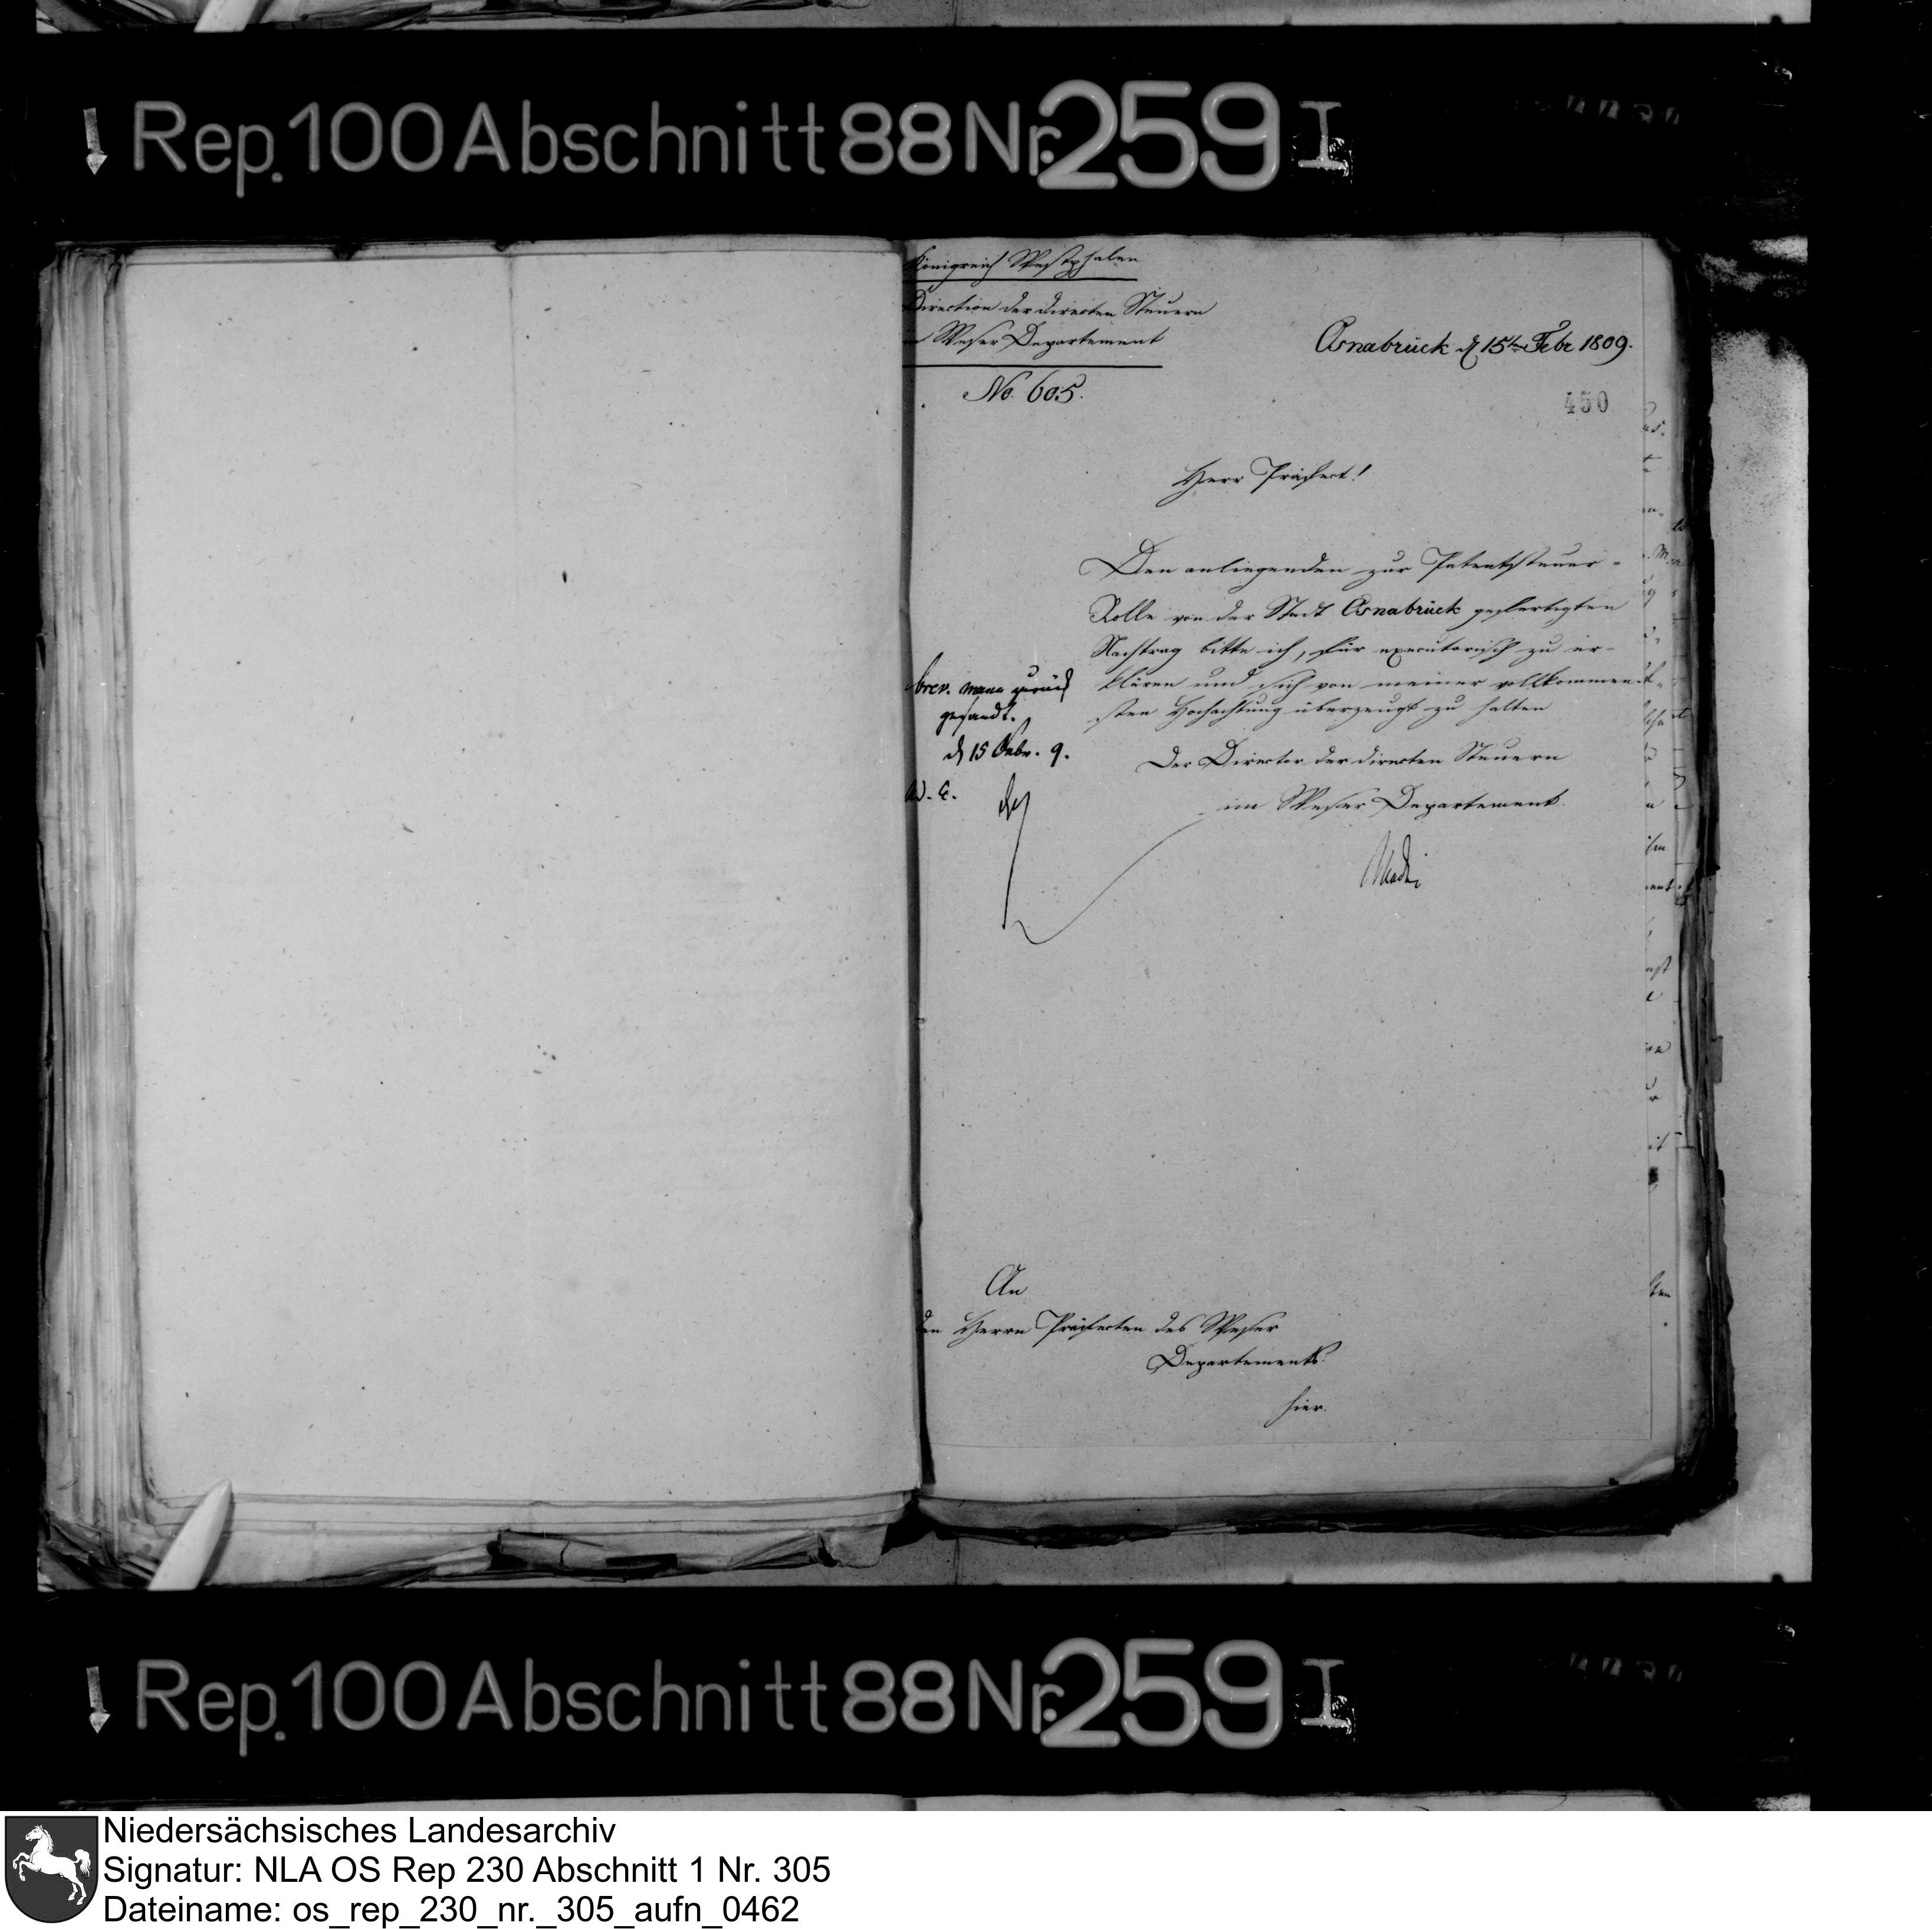 Rep. 100 Abschnitt 88 Nr. 259 I
Königreich Westphalen
Direction der directen Steuern
im Weser Departement
No. 605.
Osnabrück d 15ten Febr 1809.
450
Herr Präfect!
Den anliegenden zur Patentsteuer-
Rolle von der Stadt Osnabrück gefertigten
Nachtrag bitte ich, für executorisch zu er-
klären und sich von meiner vollkommen-
sten Hochachtung überzeugt zu halten
Der Director der directen Steuern
im Weser Departement.
brev. manu zurück
gesandt.
d 15 Febr. 9.
An
den Herrn Präfecten des Weser
Departements
hier.
Rep. 100 Abschnitt 88 Nr. 259 I
Niedersächsisches Landesarchiv
Signatur: NLA OS Rep 230 Abschnitt 1 Nr. 305
Dateiname: os_rep_230_nr._305_aufn_0462